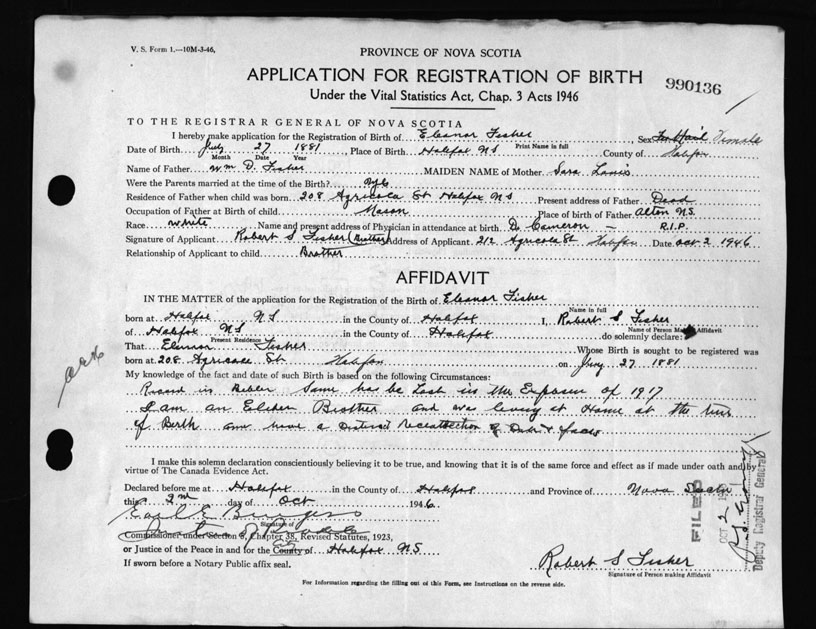 V. S. Form 1.—10M-3-46.
PROVINCE OF NOVA SCOTIA
APPLICATION FOR REGISTRATION OF BIRTH
990136
Under the Vital Statistics Act, Chap. 3 Acts 1946
TO THE REGISTRAR GENERAL OF NOVA SCOTIA
I hereby make application for the Registration of Birth of Eleanor Fisher, Sex Female
Print Name in full
Date of Birth July 27 1881, Place of Birth Halifax NS County of Halifax
Month Date Year
Name of Father Wm D. Fisher MAIDEN NAME of Mother Sara
Were the Parents married at the time of the Birth?
Residence of Father when child was born 208 Agricola St Halifax NS Present address of Father Dead
Occupation of Father at Birth of child Mason Place of birth of Father Alton N.S.
Race White Name and present address of Physician in attendance at birth Dr Cameron — R.I.P.
Signature of Applicant Robert S Fisher (Brother) Address of Applicant 212 Agricola St Halifax Date Oct 2 1946
Relationship of Applicant to child Brother
AFFIDAVIT
IN THE MATTER of the application for the Registration of the Birth of Eleanor Fisher
Name in full
born at Halifax NS in the County of Halifax I, Robert S Fisher
Name of Person Making Affidavit
of Halifax NS in the County of Halifax do solemnly declare:
Present Residence
That Elinnor Fisher Whose Birth is sought to be registered was
born at 208 Agricola St Halifax on July 27 1881
My knowledge of the fact and date of such Birth is based on the following Circumstances:
in Bible Same has be Lost in the of 1917
I am an Brother and was living at Home at the time
of Birth and have a Distinct of Date &
I make this solemn declaration conscientiously believing it to be true, and knowing that it is of the same force and effect as if made under oath and by
virtue of The Canada Evidence Act.
Declared before me at Halifax in the County of Halifax and Province of Nova Scotia
this 2nd day of Oct 1946.
Signature of
Commissioner under Section 8, Chapter 38, Revised Statutes, 1923,
or Justice of the Peace in and for the County of Halifax NS
If sworn before a Notary Public affix seal.
Robert S Fisher
Signature of Person making Affidavit
For Information regarding the filling out of this Form, see Instructions on the reverse side.
FILED
OCT 2
Deputy Registrar General